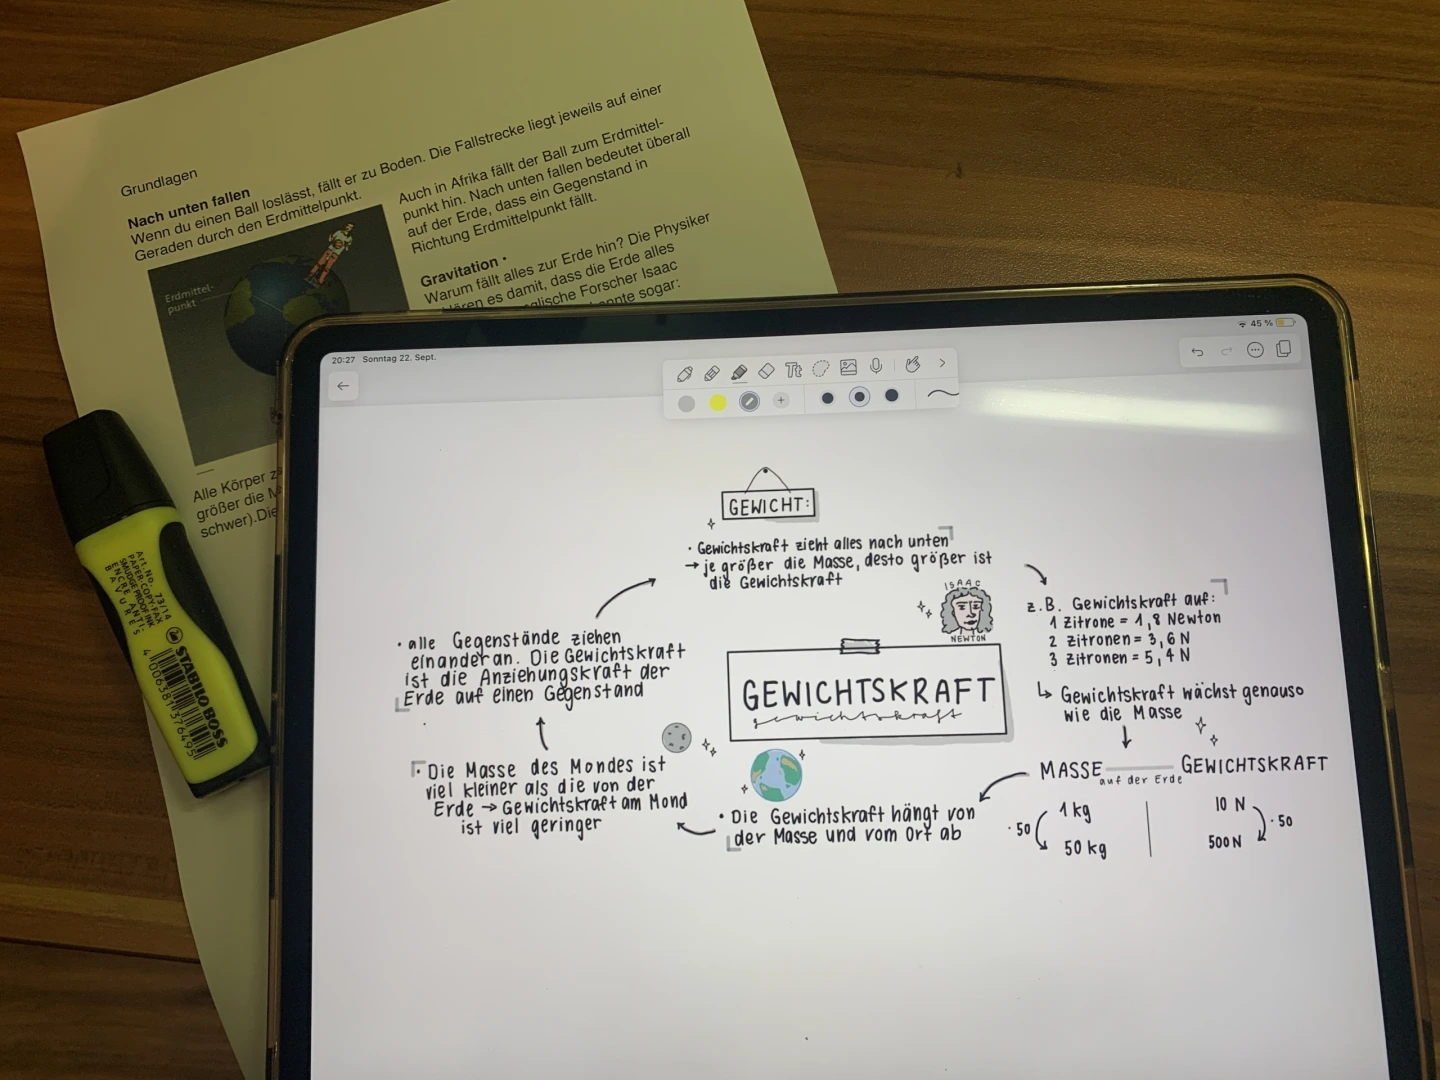 Grundlagen
Nach unten fallen
Wenn du einen Ball loslässt, fällt er zu Boden. Die Fallstrecke liegt jeweils auf einer
Geraden durch den Erdmittelpunkt.
Erdmittel-
punkt
Auch in Afrika fällt der Ball zum Erdmittel-
punkt hin. Nach unten fallen bedeutet überall
auf der Erde, dass ein Gegenstand in
Richtung Erdmittelpunkt fällt.
Gravitation
Warum fällt alles zur Erde hin? Die Physiker
es damit, dass die Erde alles
Forscher Isaac
sogar:
Alle Körper
größer die
schwer).Die
Art.No. 73/14
PAPER-COPY-FAX
SMUDGE PROOF INK
ENCRE ANTI-
BAVURES
STABILO BOSS
4 006381 376495
20:27 Sonntag 22. Sept.
45 %
Tt
GEWICHT:
· Gewichtskraft zieht alles nach unten
→ je größer die Masse, desto größer ist
die Gewichtskraft
ISAAC
NEWTON
z.B. Gewichtskraft auf:
1 Zitrone = 1,8 Newton
2 Zitronen = 3,6 N
3 Zitronen = 5,4 N
↳ Gewichtskraft wächst genauso
wie die Masse
MASSE auf der Erde GEWICHTSKRAFT
1 kg 10 N
· 50 · 50
50 kg 500 N
· Die Gewichtskraft hängt von
der Masse und vom Ort ab
· Die Masse des Mondes ist
viel kleiner als die von der
Erde → Gewichtskraft am Mond
ist viel geringer
· alle Gegenstände ziehen
einander an. Die Gewichtskraft
ist die Anziehungskraft der
Erde auf einen Gegenstand
GEWICHTSKRAFT
gewichtskraft